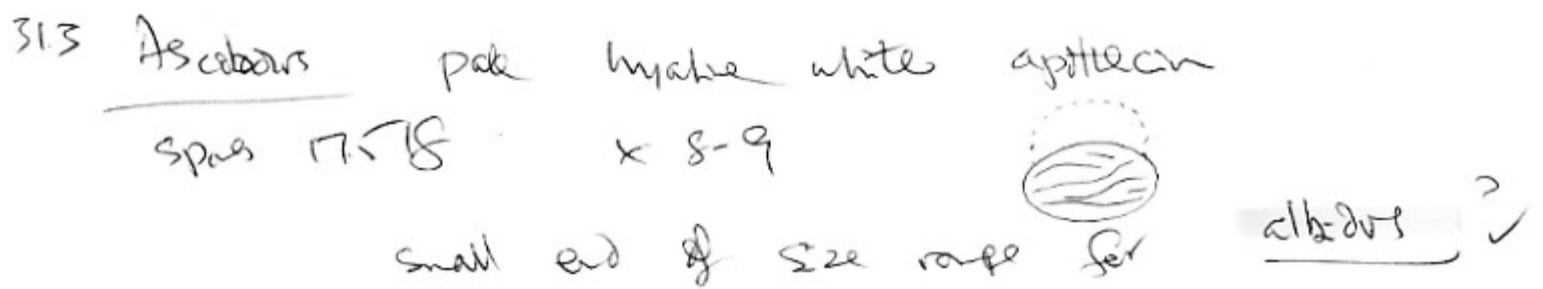 313 Ascobolus pale hyaline white apothecia
spores 17.5-18 x 8-9
small end of size range for albidus ? ✓